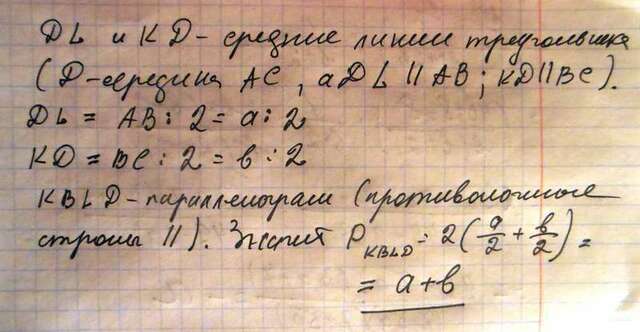 DL и KD - средние линии треугольника
(D - середина AC, а DL || AB; KD || BC).
DL = AB : 2 = a : 2
KD = BC : 2 = b : 2
KBLD - параллелограм (противоположные
стороны ||). Значит P KBLD = 2(a/2 + b/2) =
= a + b